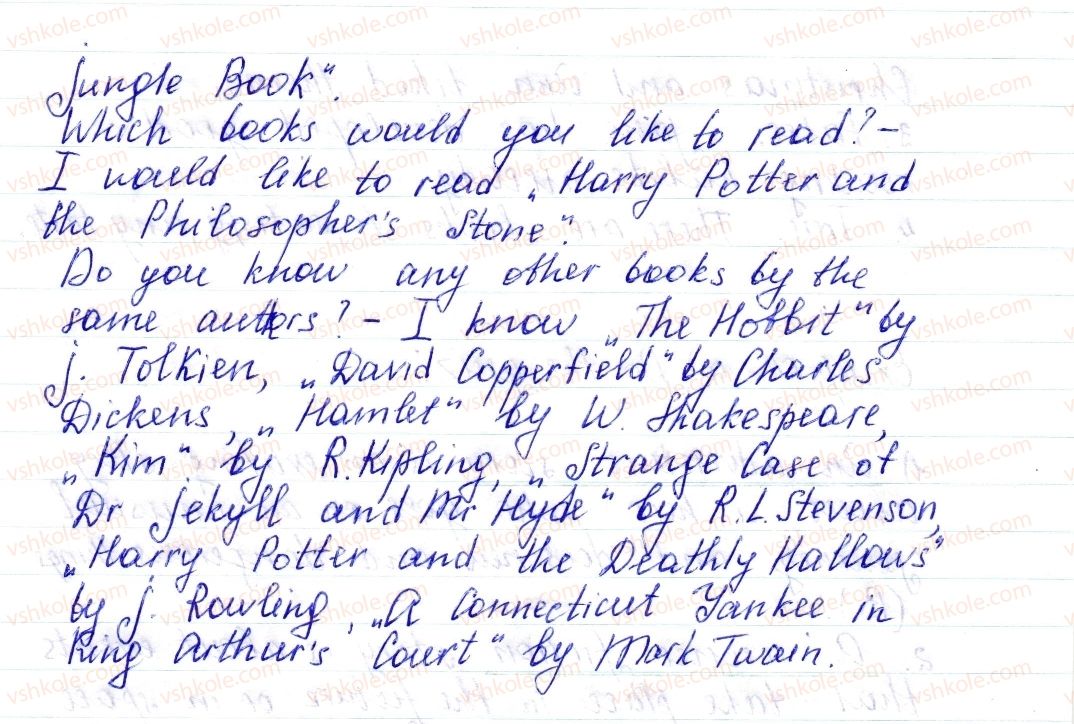 Jungle Book".
Which books would you like to read? –
I would like to read „Harry Potter and
the Philosopher's Stone".
Do you know any other books by the
same authors? – I know „The Hobbit" by
J. Tolkien, „David Copperfield" by Charles
Dickens, „Hamlet" by W. Shakespeare,
„Kim" by R. Kipling, „Strange Case of
Dr Jekyll and Mr Hyde" by R. L. Stevenson,
„Harry Potter and the Deathly Hallows"
by J. Rowling, „A Connecticut Yankee in
King Arthur's Court" by Mark Twain.
vshkole.com